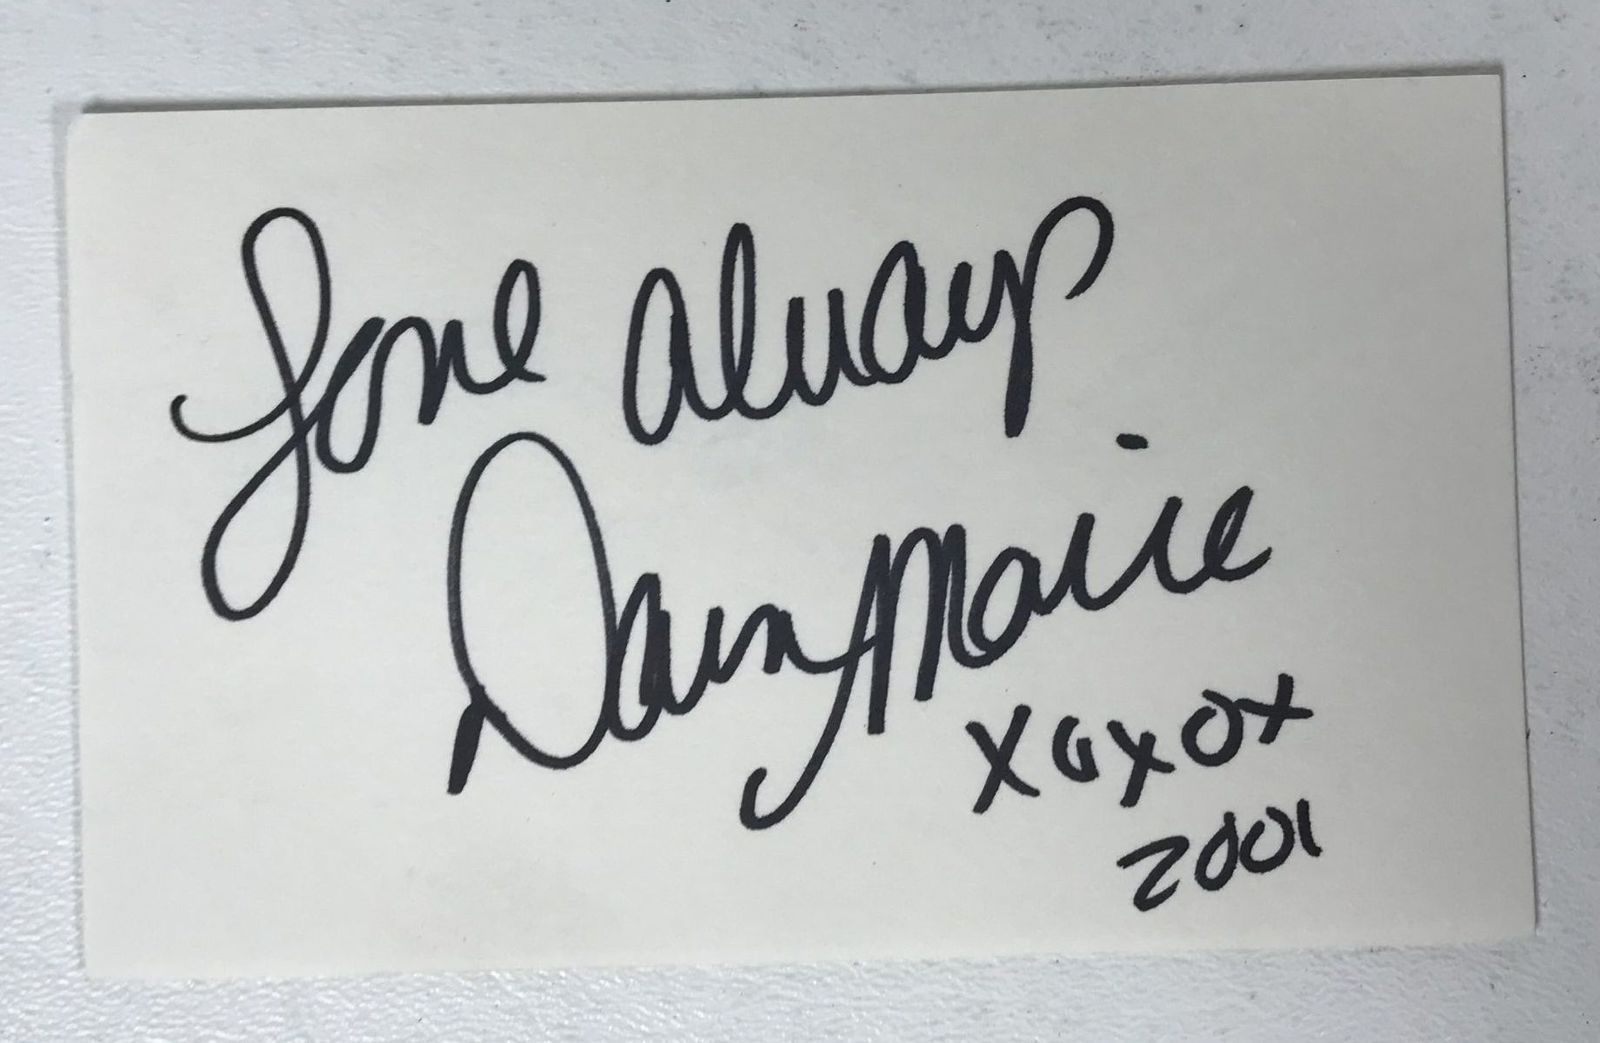 Love Always
Dawn Marie
XOXOX
2001